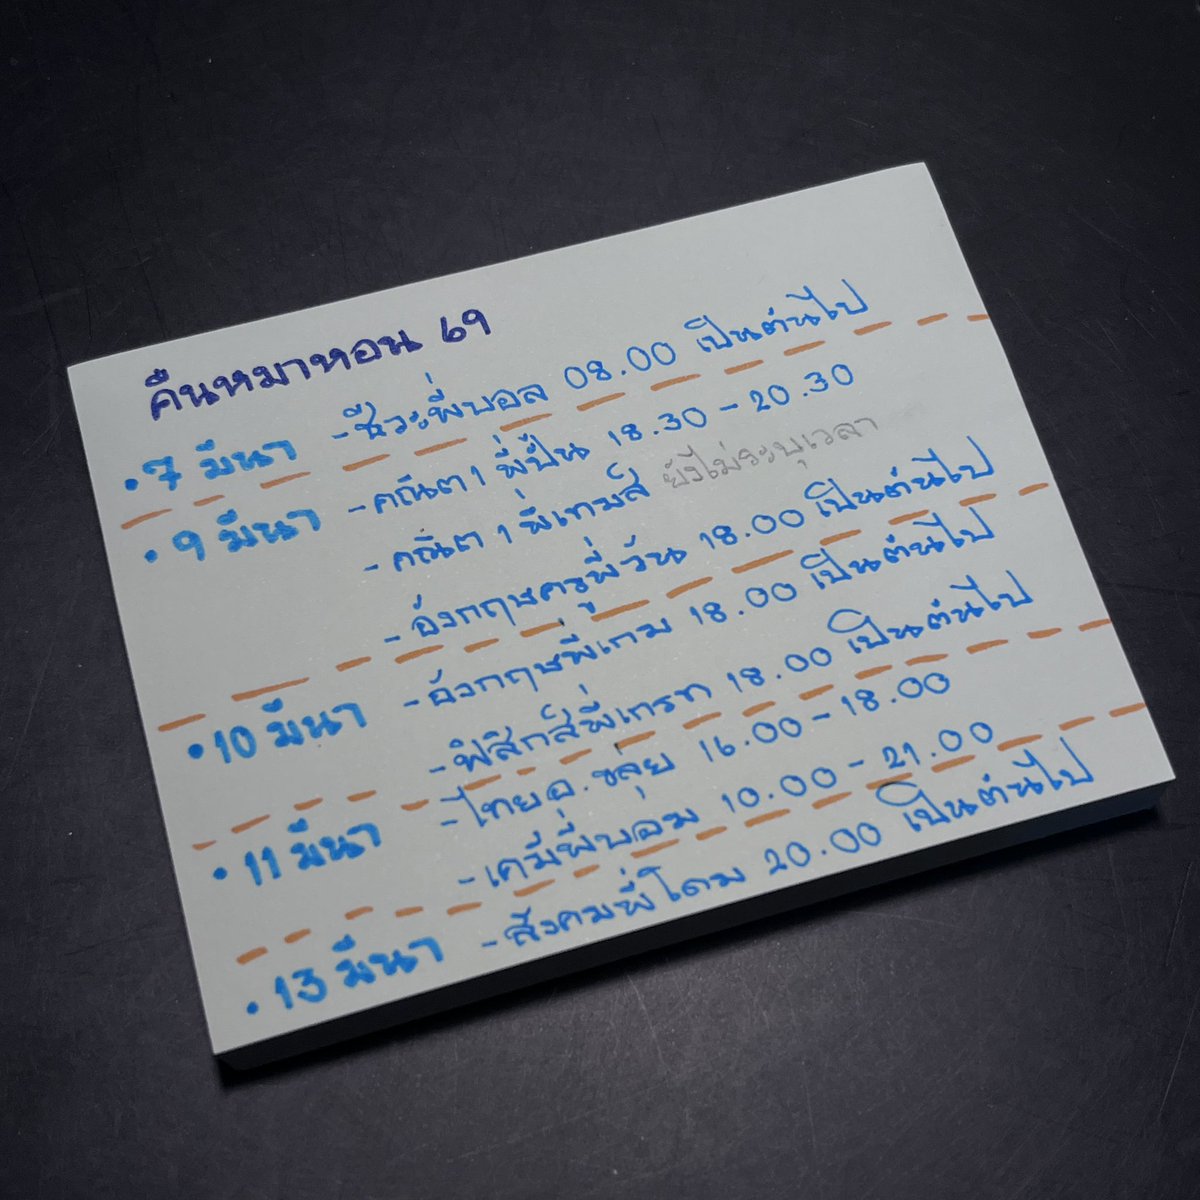 คืนหมาหอน 69
• 7 มีนา - ชีวะพี่บอล 08.00 เป็นต้นไป
• 9 มีนา - คณิต 1 พี่ปั้น 18.30 - 20.30
- คณิต 1 พี่เทมส์ ยังไม่ระบุเวลา
- อังกฤษครูพี่วัน 18.00 เป็นต้นไป
• 10 มีนา - อังกฤษพี่เกม 18.00 เป็นต้นไป
- ฟิสิกส์พี่เกรท 18.00 เป็นต้นไป
• 11 มีนา - ไทยอ. ขลุย 16.00 - 18.00
- เคมีพี่บอม 10.00 - 21.00
• 13 มีนา - สังคมพี่โดม 20.00 เป็นต้นไป